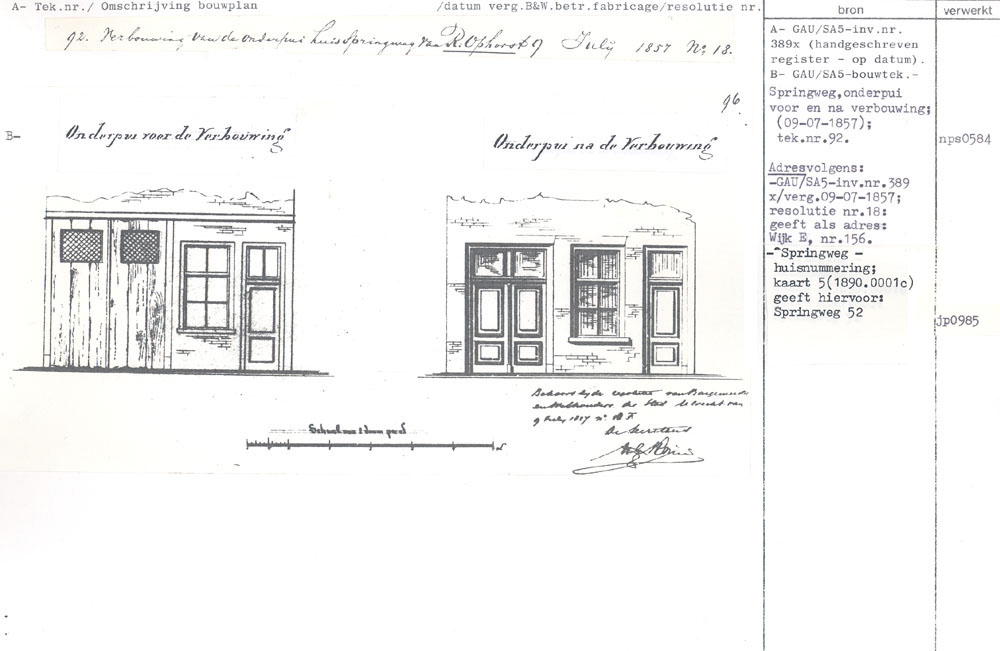 A- Tek.nr./ Omschrijving bouwplan /datum verg.B&W.betr.fabricage/resolutie nr.
92. Verbouwing van de onderpui huis Springweg van R. Ophorst 9 July 1857 No 18.
96.
B-
Onderpui voor de Verbouwing
Onderpui na de Verbouwing
Behoort bij de van Burgemeester
en Wethouders der Stad Utrecht van
9 July 1857 no 18
De Secretaris
bron
A- GAU/SA5-inv.nr.
389x (handgeschreven
register - op datum).
B- GAU/SA5-bouwtek.-
Springweg,onderpui
voor en na verbouwing;
(09-07-1857);
tek.nr.92.
Adresvolgens:
-GAU/SA5-inv.nr.389
x/verg.09-07-1857;
resolutie nr.18:
geeft als adres:
Wijk E, nr.156.
-^Springweg -
huisnummering;
kaart 5(1890.0001c)
geeft hiervoor:
Springweg 52
verwerkt
nps0584
jp0985